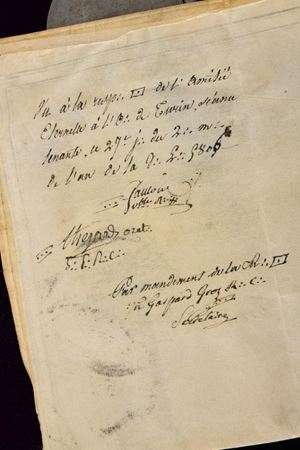 Vu à la resp∴ ▭ de l'Amitié
Eternelle à l'O∴ de Turin séance
tenante, le 27e j∴ du 2∴ m∴
de l'an de la V∴ L∴ 5806
orat∴
S∴ P∴ R∴ C∴
Par mandement de la R∴ ▭
Gaspard R∴ C∴
Secrétaire